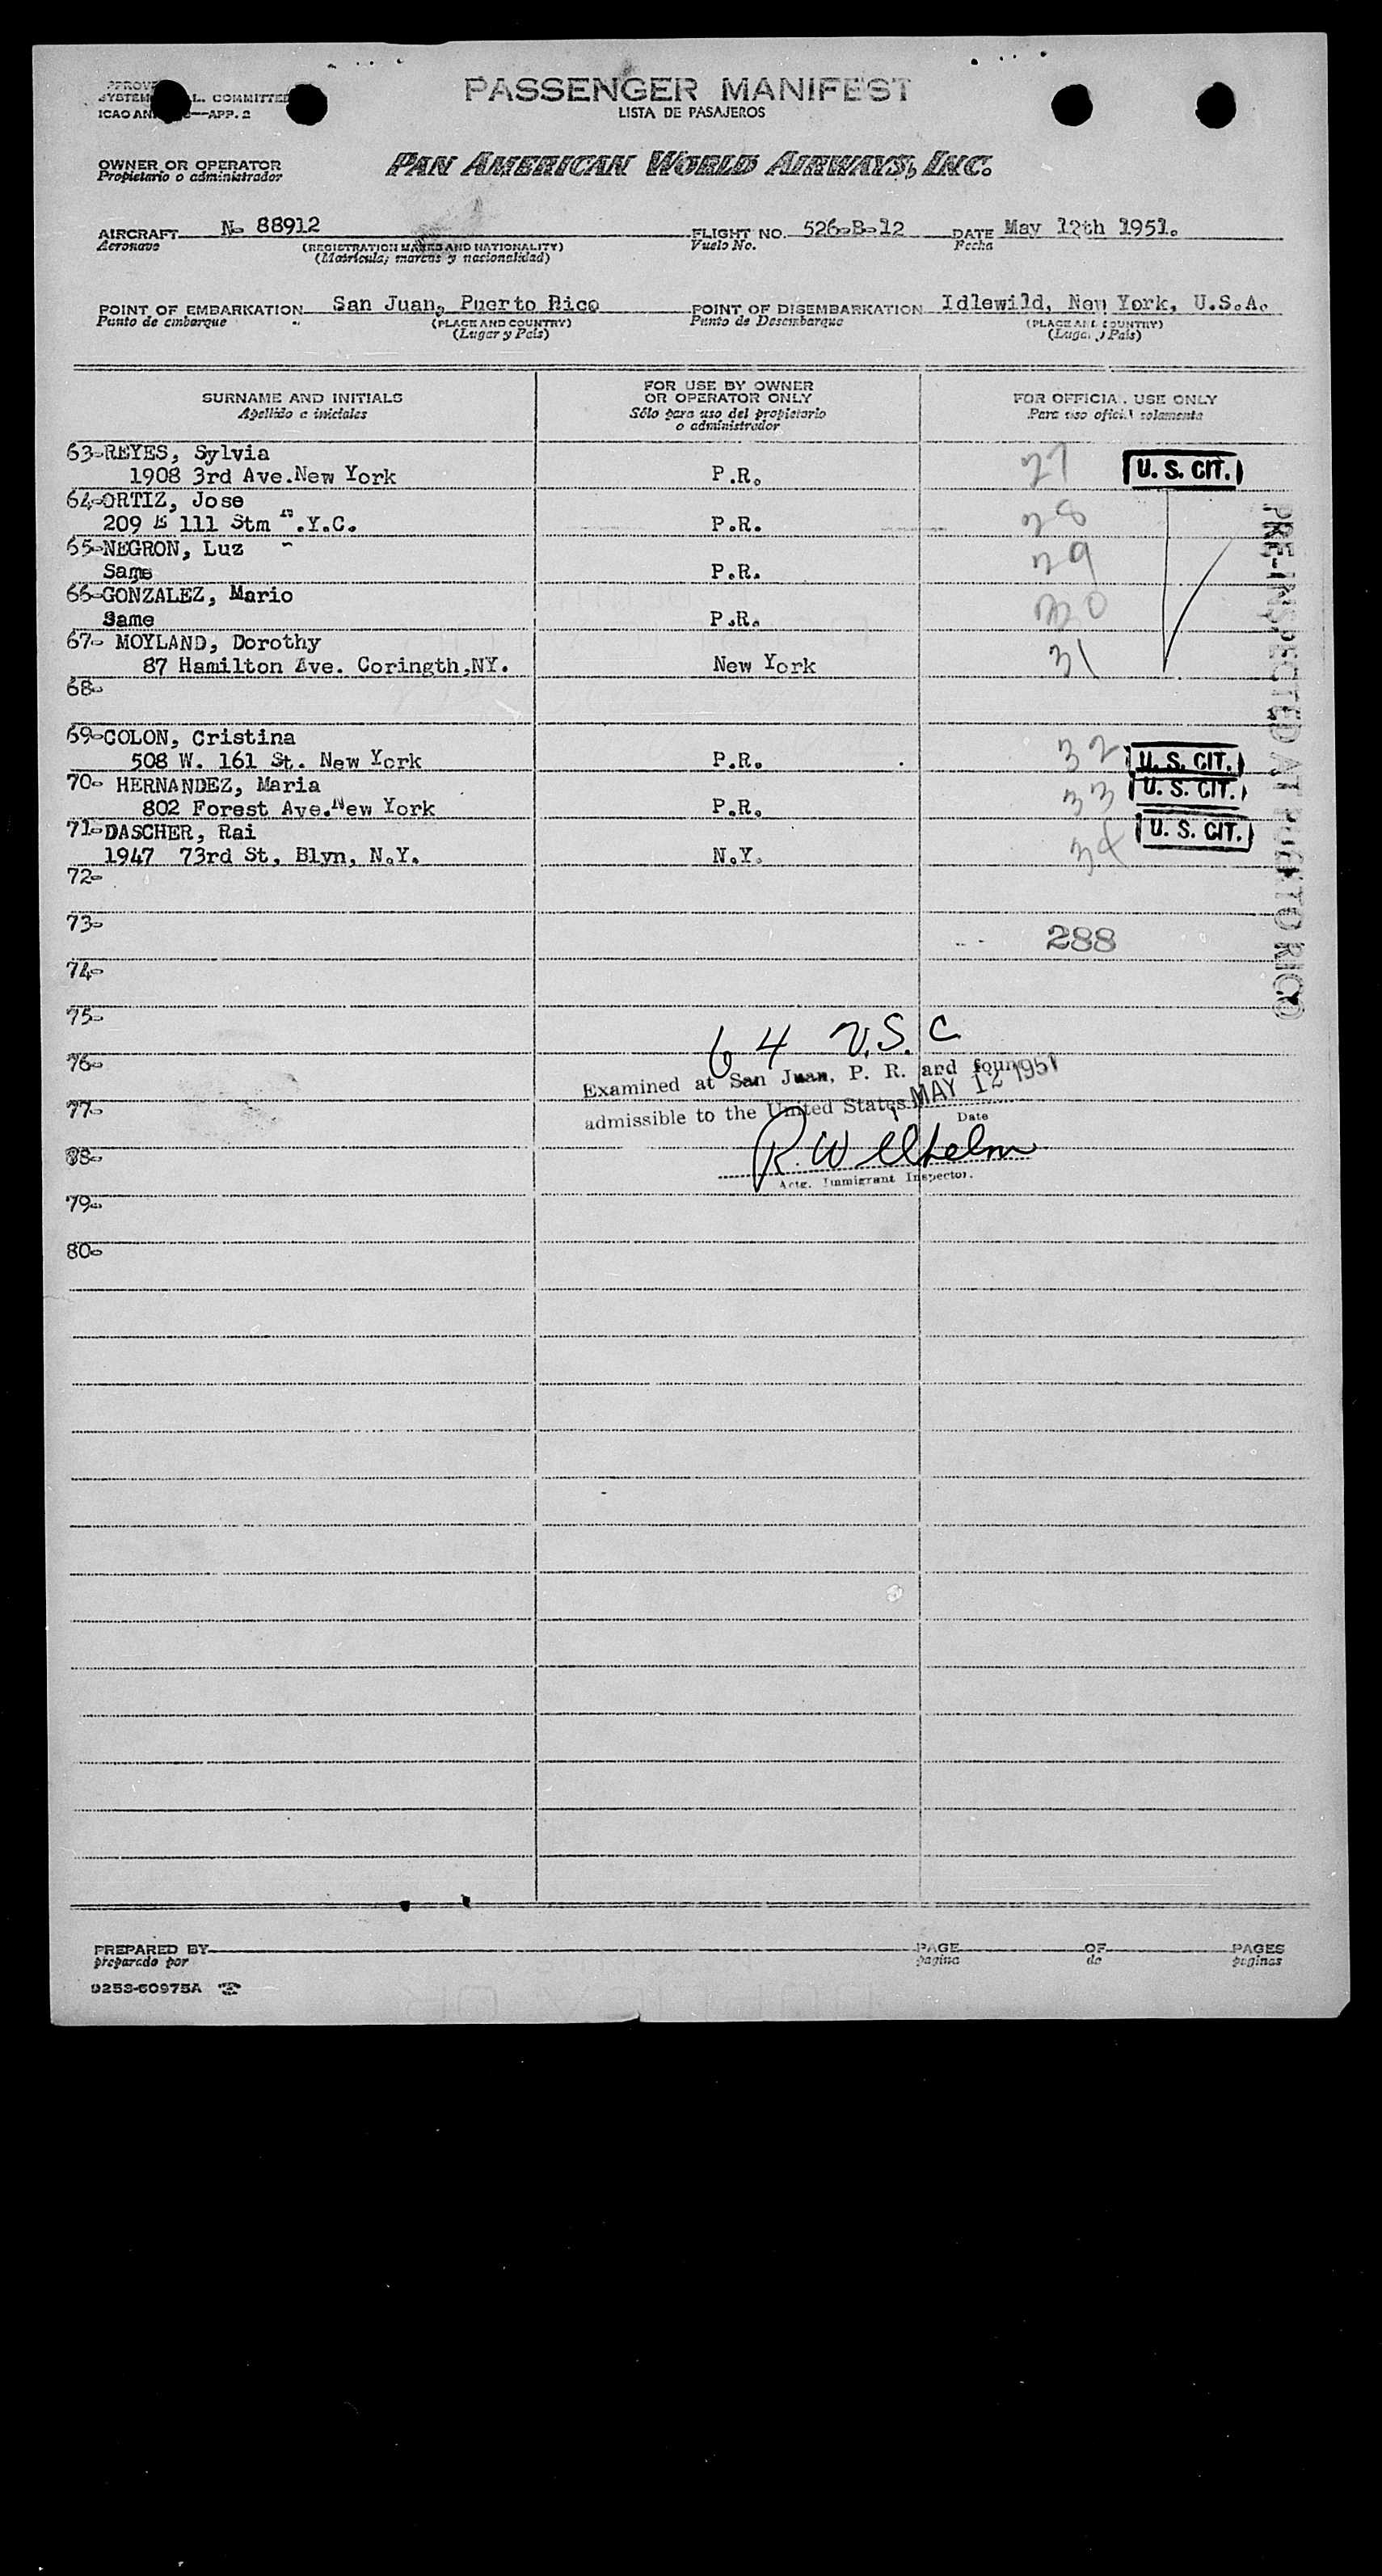 PASSENGER MANIFEST
LISTA DE PASAJEROS
L. COMMITTEE
ICAO —APP. 2
OWNER OR OPERATOR
Propietario o administrador
PAN AMERICAN WORLD AIRWAYS, INC.
AIRCRAFT N- 88912 FLIGHT NO. 526-B-12 DATE May 12th 1951.
Aeronave (REGISTRATION MARKS AND NATIONALITY) Vuelo No. Fecha
(Matrícula, marcas y nacionalidad)
POINT OF EMBARKATION San Juan, Puerto Rico POINT OF DISEMBARKATION Idlewild, New York, U.S.A.
Punto de embarque (PLACE AND COUNTRY) Punto de Desembarque (PLACE AND COUNTRY)
(Lugar y País) (Lugar y País)
SURNAME AND INITIALS FOR USE BY OWNER OR OPERATOR ONLY FOR OFFICIAL USE ONLY
Apellido e iniciales Sólo para uso del propietario o administrador Para uso oficial solamente
63-REYES, Sylvia
1908 3rd Ave.New York P.R. 27 U. S. CIT.
64-ORTIZ, Jose
209 E 111 Stm N.Y.C. P.R. 28
65-NEGRON, Luz
Same P.R. 29
66-GONZALEZ, Mario
Same P.R. 30
67- MOYLAND, Dorothy
87 Hamilton Ave. Coringth,NY. New York 31
68-
69-COLON, Cristina
508 W. 161 St. New York P.R. 32 U. S. CIT.
70- HERNANDEZ, Maria
802 Forest Ave.New York P.R. 33 U. S. CIT.
71-DASCHER, Rai
1947 73rd St, Blyn, N.Y. N.Y. 34 U. S. CIT.
PRE-INSPECTED AT PUERTO RICO
72-
73- 288
74-
75-
64 U.S.C
76-
Examined at San Juan, P. R. and found
77-
admissible to the United States MAY 12 1951
Date
78-
R. Wilhelm
Actg. Immigrant Inspector.
79-
80-
PREPARED BY PAGE OF PAGES
preparado por pagina de paginas
9253-60975A